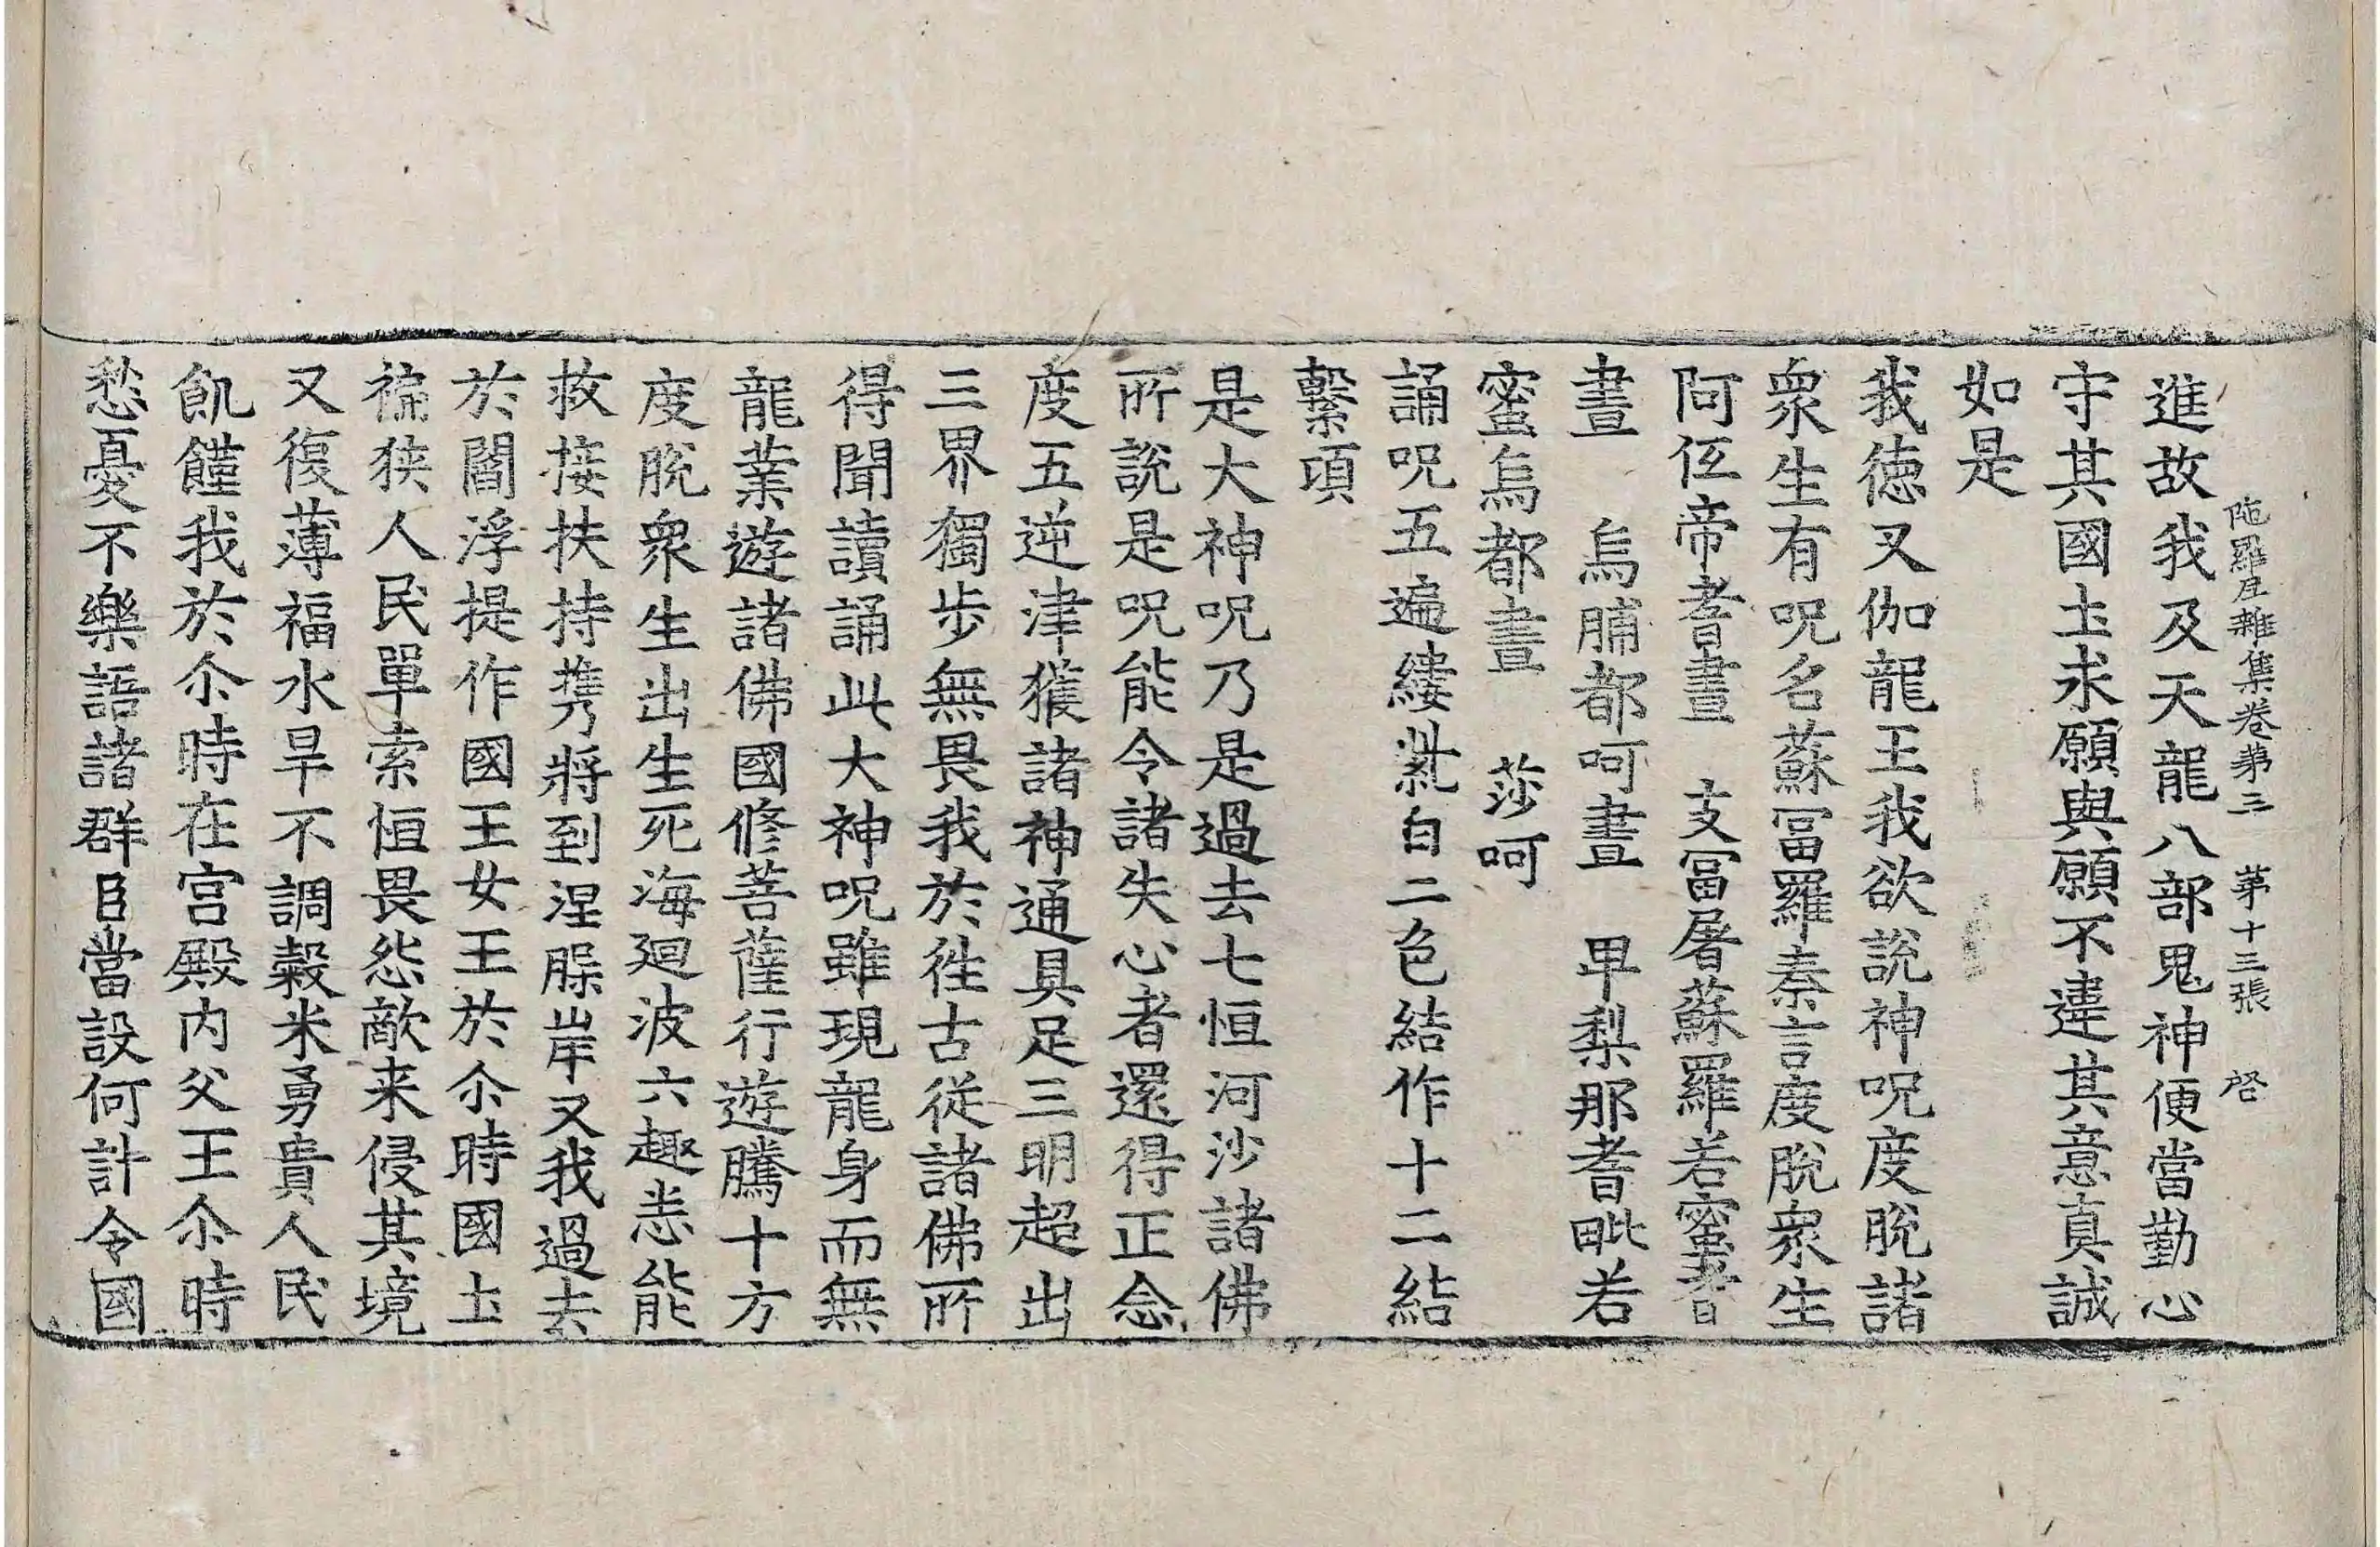 陁羅尼雜集卷第三　第十三張　啓
進故我及天龍八部鬼神便當勤心
守其國圡求願與願不違其意真誠
如是
我德叉伽龍王我欲說神呪度脫諸
衆生有呪名蘇冨羅秦言度脫衆生
阿伍帝耆晝　支冨屠蘇羅若蜜耆
晝　烏脯都呵晝　甲梨那耆毗若
蜜烏都晝　莎呵
誦呪五遍縷紫白二色結作十二結
繫項
是大神呪乃是過去七恒河沙諸佛
所說是呪能令諸失心者還得正念
度五逆津獲諸神通具足三明超出
三界獨步無畏我於徃古從諸佛所
得聞讀誦此大神呪雖現龍身而無
龍業遊諸佛國修菩薩行遊騰十方
度脫衆生出生死海廻波六趣恙能
救接扶持携將到涅槃岸又我過去
於閻浮提作國王女王於尒時國圡
褊狹人民單索恒畏怨敵来侵其境
又復薄福水旱不調穀米勇貴人民
飢饉我於尒時在宮殿内父王尒時
愁憂不樂語諸群臣當設何計令國